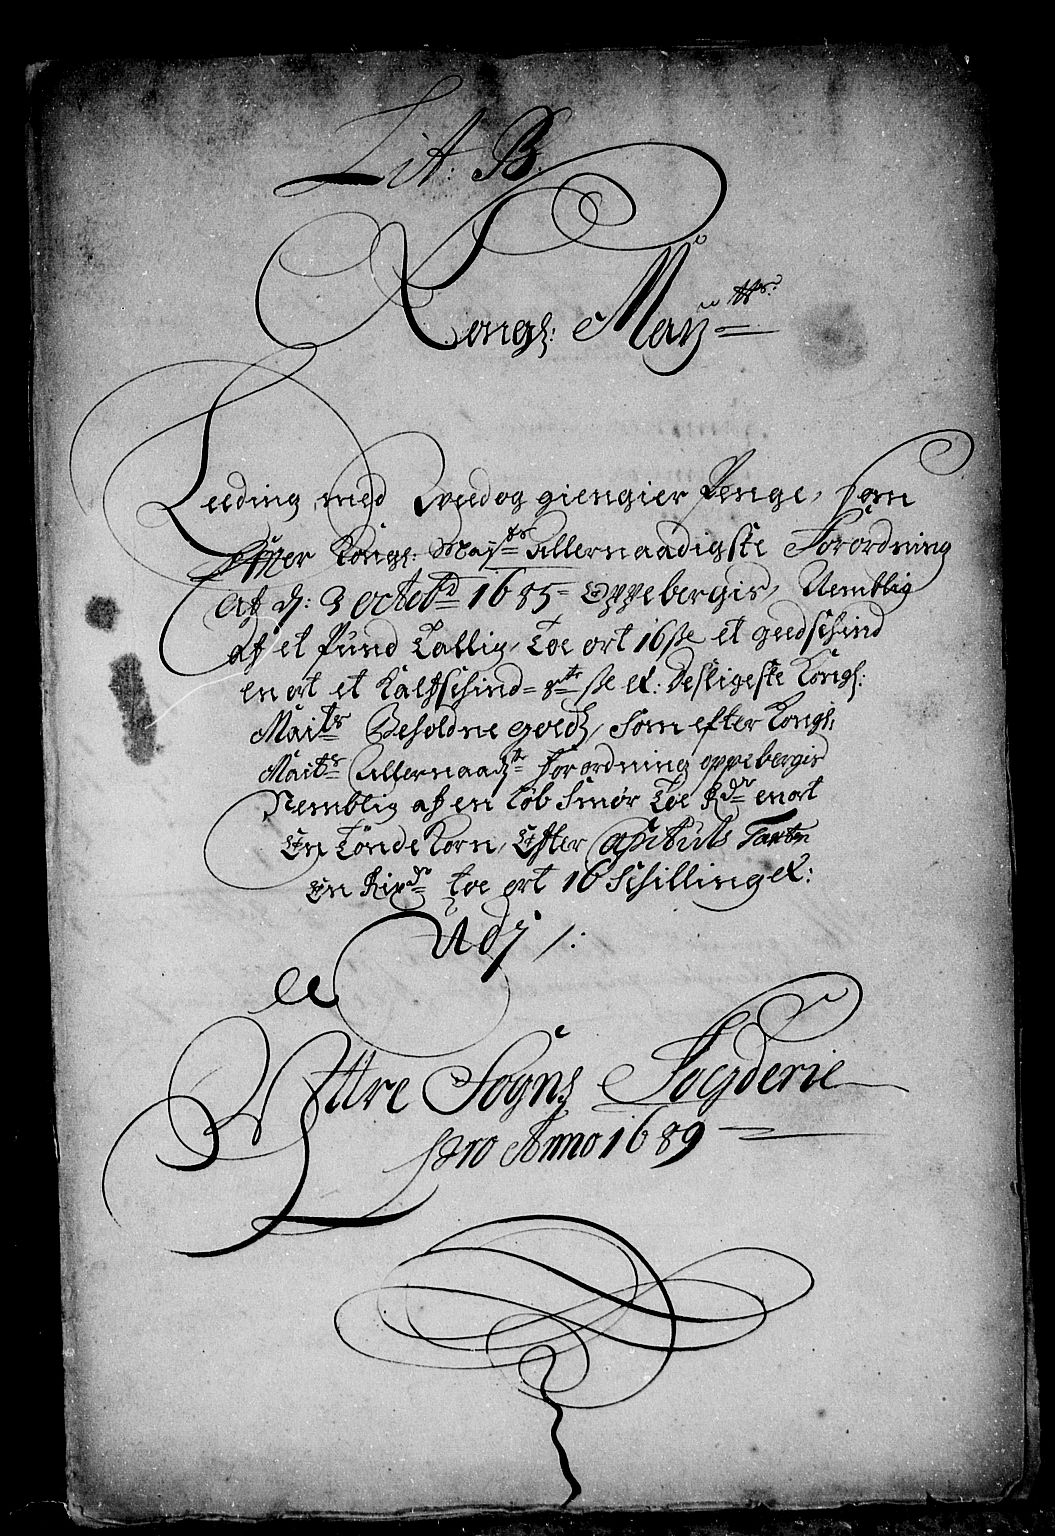 Lit: B.
Kongl: Maÿ:tts:
Leeding med Wiidog giengier Penge, som
Effter Kongl: Maÿ:ts Allernaadigste Forordning
Af d: 3 octob: 1685 Oppebergis, Nemblig
af et Pund Tallig, Toe ort 16 sk et geedschind
en ort et Kalfschind 8te sk &: Desligeste Kongl:
Maits Beholdne goedz, som efter Kongl.
Maits Allernaadste forordning oppebergis
Nemblig af en Løb Smør Toe Rdr en ort
En Tønde Korn, Efter Capituls Taxten
En Rixdr toe ort 16 Schilling &:
Udj /:
Yttre Sogns Fogderie
Pro Anno 1689